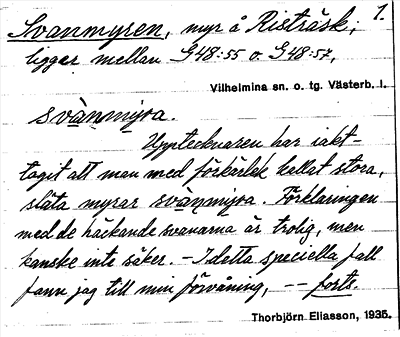 Svanmyren, myr å Risträsk; 1.
ligger mellan G48:55 o. G48:57,
Vilhelmina sn. o. tg. Västerb. l.
svànmỳra.
Upptecknaren har iakt-
tagit att man med förkärlek kallat stora,
släta myrar svànmỳra. Förklaringen
med de häckande svanarna är trolig, men
kanske inte säker. – I detta speciella fall
fann jag till min förvåning, –– forts.
Thorbjörn Eliasson, 1935.